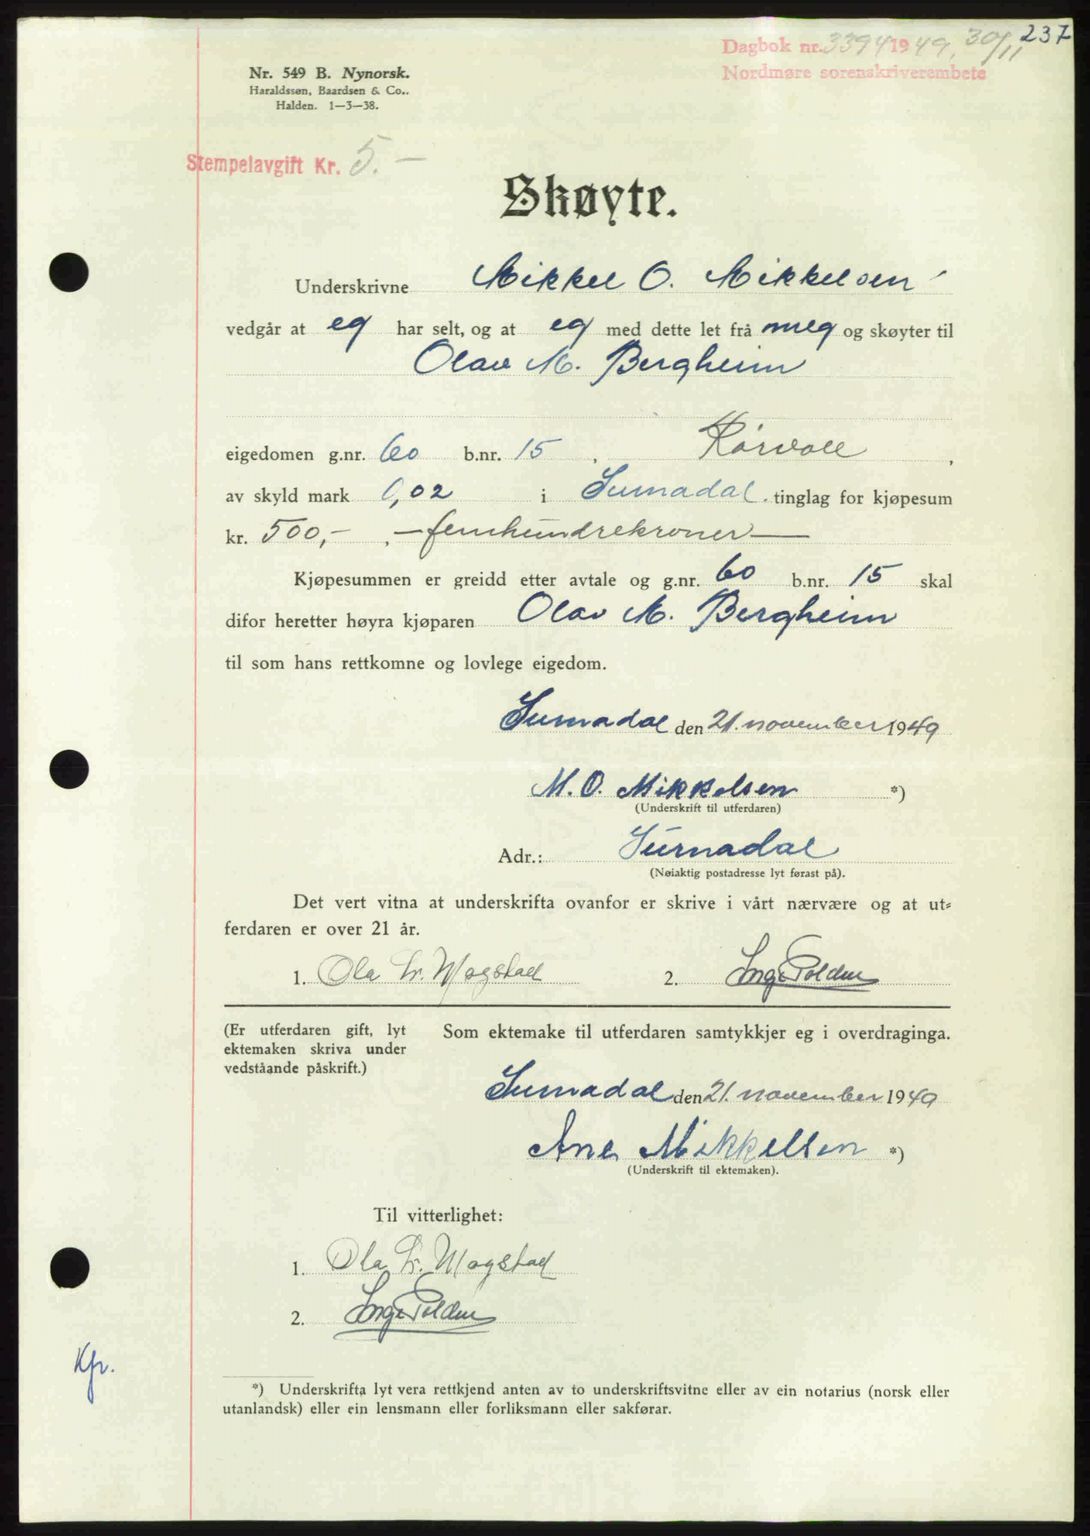 237
Dagbok nr. 3394 1949, 30/11
Nordmøre sorenskriverembete
Nr. 549 B. Nynorsk.
Haraldssøn, Baardsen & Co..
Halden. 1—3—38.
Stempelavgift Kr. 5.—
Skøyte.
Underskrivne Mikkel O. Mikkelsen
vedgår at eg har selt, og at eg med dette let frå meg og skøyter til
Olav M. Bergheim
eigedomen g.nr. 60 b.nr. 15, Rørvoll,
av skyld mark 0,02 i Surnadal tinglag for kjøpesum
kr. 500,- , — femhundrekroner —
Kjøpesummen er greidd etter avtale og g.nr. 60 b.nr. 15 skal
difor heretter høyra kjøparen Olav M. Bergheim
til som hans rettkomne og lovlege eigedom.
Surnadal den 21. november 1949
M. O. Mikkelsen *)
(Underskrift til utferdaren)
Adr.: Surnadal
(Nøiaktig postadresse lyt førast på).
Det vert vitna at underskrifta ovanfor er skrive i vårt nærvære og at ut-
ferdaren er over 21 år.
1. Ola Tr. Mogstad 2. Inge Polden
(Er utferdaren gift, lyt
ektemaken skriva under
vedståande påskrift.)
Som ektemake til utferdaren samtykkjer eg i overdraginga.
Surnadal den 21. november 1949
Ane Mikkelsen *)
(Underskrift til ektemaken).
Til vitterlighet:
1. Ola Tr. Mogstad
2. Inge Polden
Kfr.
*) Underskrifta lyt vera rettkjend anten av to underskriftsvitne eller av ein notarius (norsk eller
utanlandsk) eller ein lensmann eller forliksmann eller sakførar.